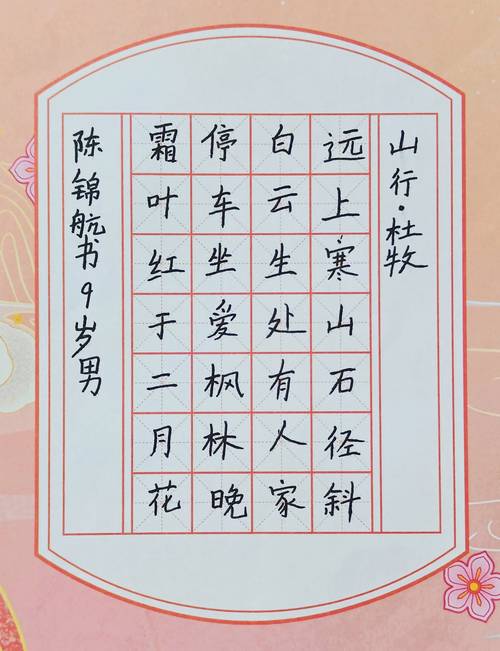 山行·杜牧
远上寒山石径斜
白云生处有人家
停车坐爱枫林晚
霜叶红于二月花
陈锦航书9岁男